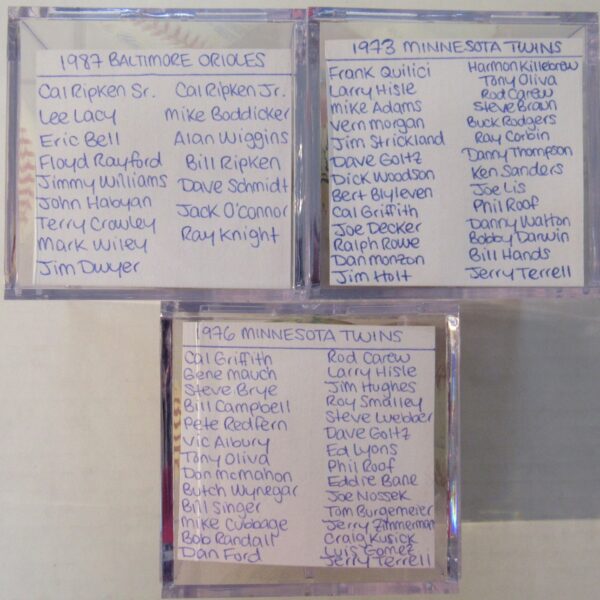 1987 BALTIMORE ORIOLES
Cal Ripken Sr.
Lee Lacy
Eric Bell
Floyd Rayford
Jimmy Williams
John Habyan
Terry Crowley
Mark Wiley
Jim Dwyer
Cal Ripken Jr.
Mike Boddicker
Alan Wiggins
Bill Ripken
Dave Schmidt
Jack O'Connor
Ray Knight
1973 MINNESOTA TWINS
Frank Quilici
Larry Hisle
Mike Adams
Vern Morgan
Jim Strickland
Dave Goltz
Dick Woodson
Bert Blyleven
Cal Griffith
Joe Decker
Ralph Rowe
Dan Monzon
Jim Holt
Harmon Killebrew
Tony Oliva
Rod Carew
Steve Braun
Buck Rodgers
Ray Corbin
Danny Thompson
Ken Sanders
Joe Lis
Phil Roof
Danny Walton
Bobby Darwin
Bill Hands
Jerry Terrell
1976 MINNESOTA TWINS
Cal Griffith
Gene Mauch
Steve Brye
Bill Campbell
Pete Redfern
Vic Albury
Tony Oliva
Don McMahon
Butch Wynegar
Bill Singer
Mike Cubbage
Bob Randall
Dan Ford
Rod Carew
Larry Hisle
Jim Hughes
Roy Smalley
Steve Luebber
Dave Goltz
Ed Lyons
Phil Roof
Eddie Bane
Joe Nossek
Tom Burgemeier
Jerry Zimmerman
Craig Kusick
Luis Gomez
Jerry Terrell